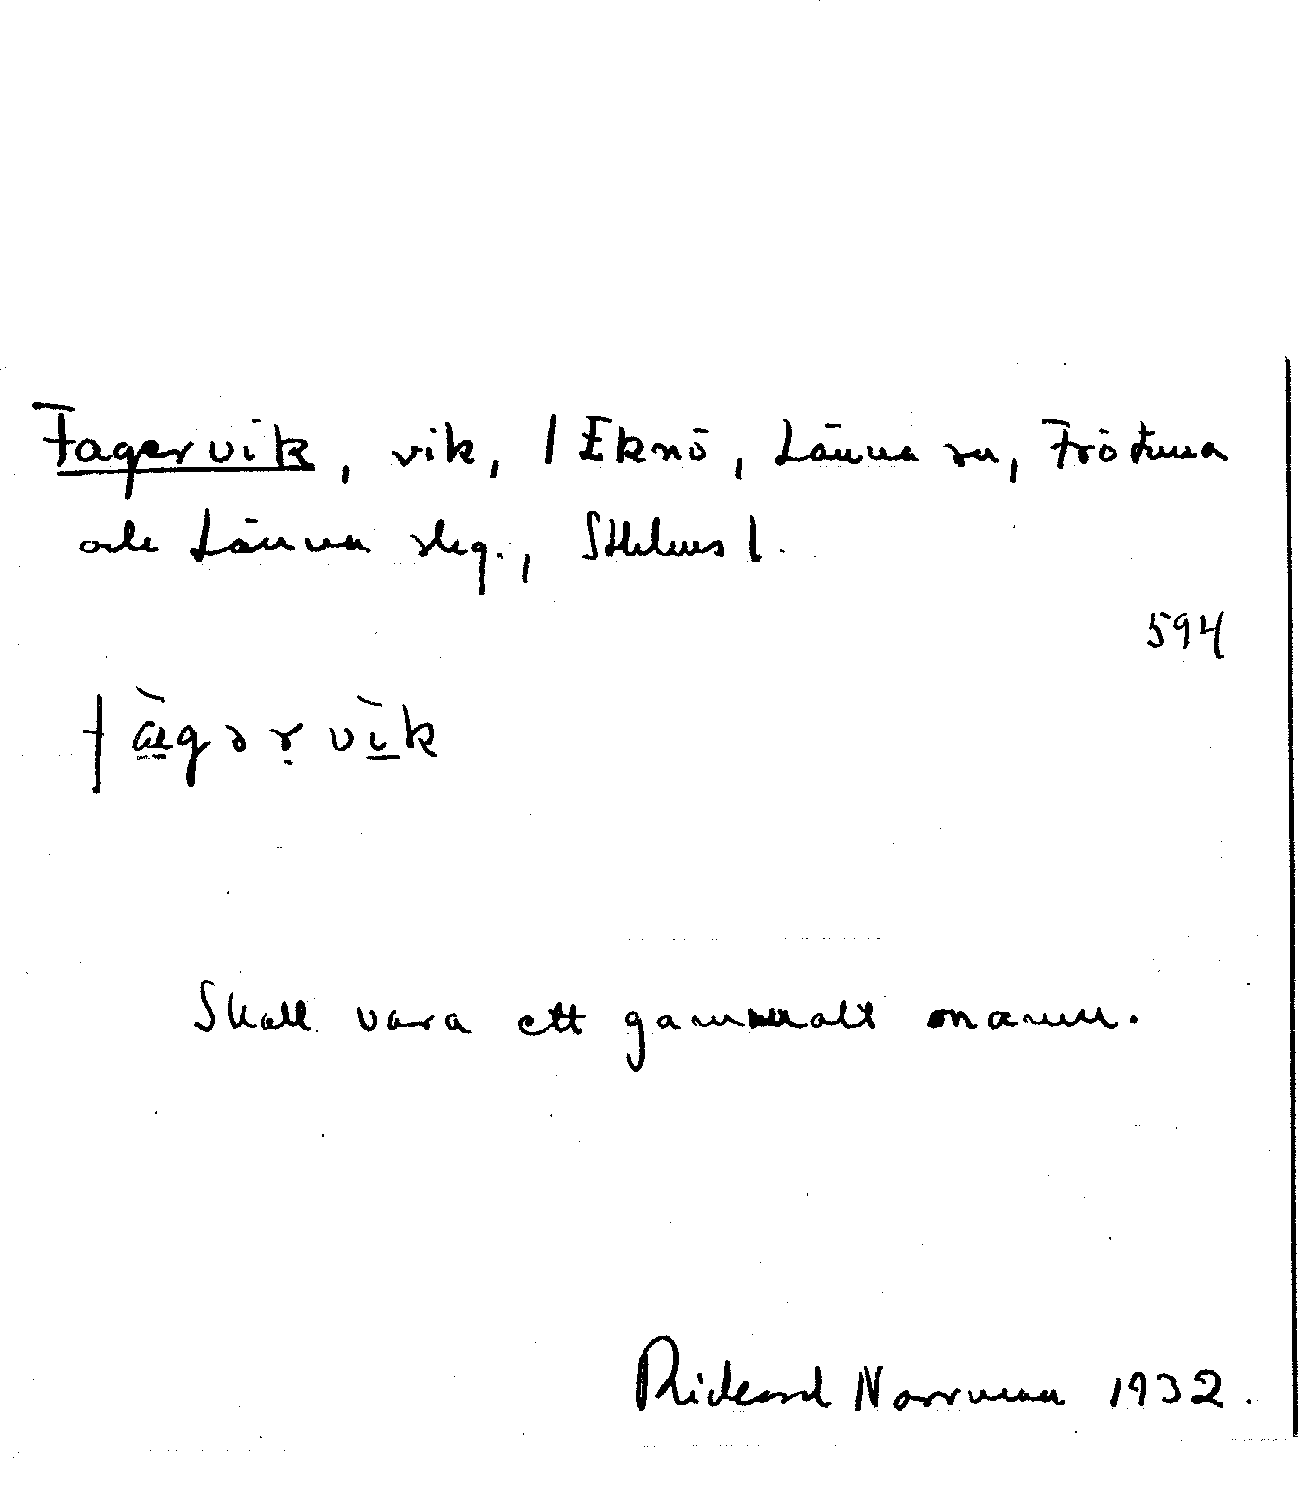 Fagervik, vik, / Eknö, Länna sn, Frötuna
och Länna slg., Sthlms l.
594
fàgərvìk
Skall vara ett gammalt namn.
Rickard Norrman 1932.